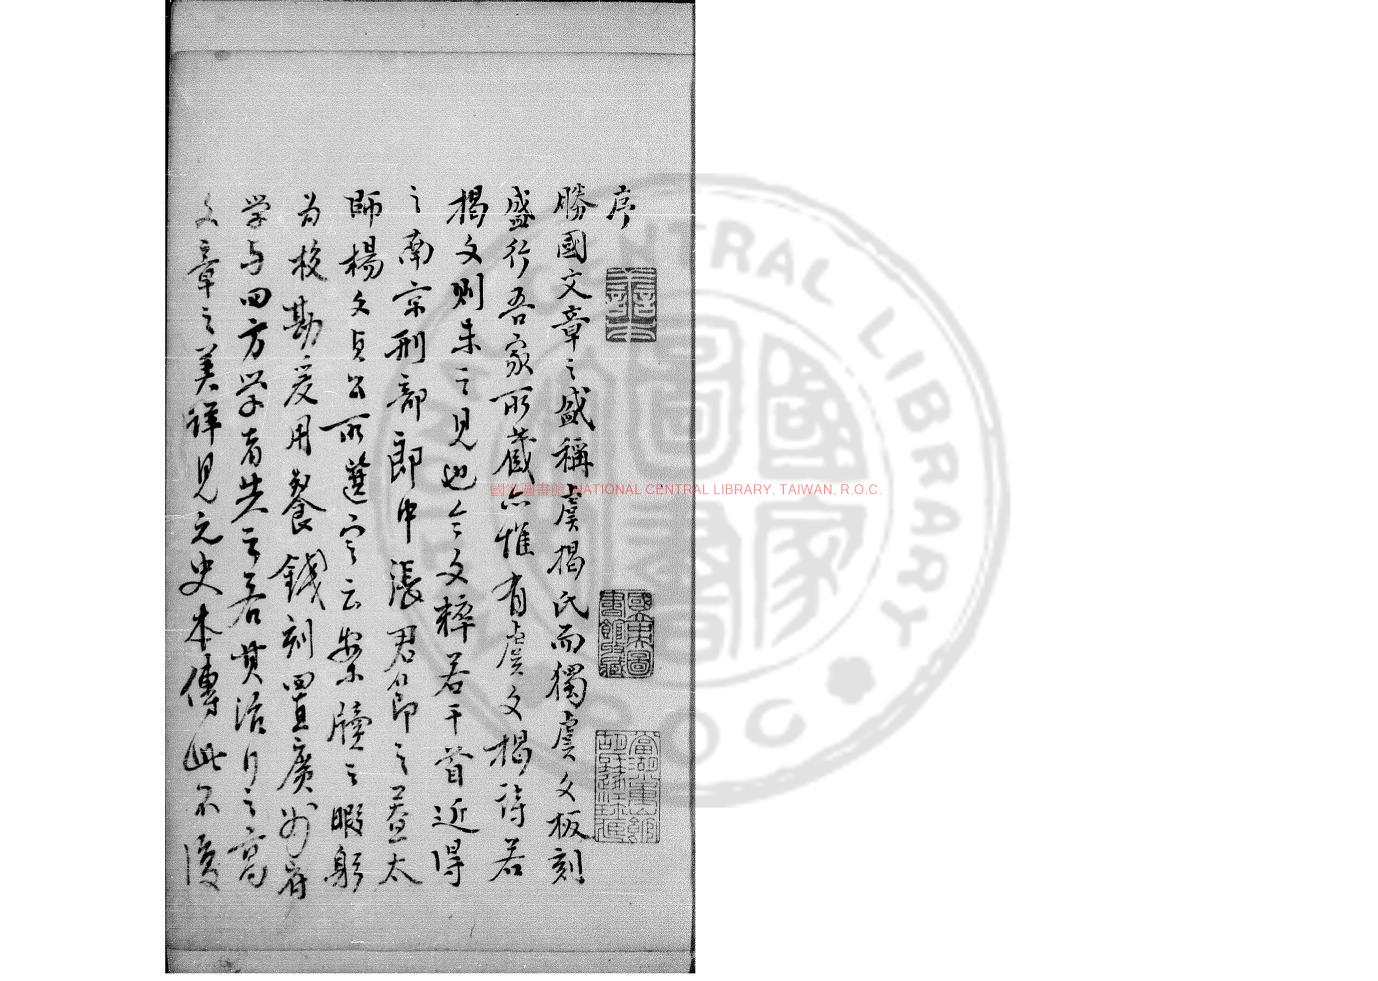 序
勝國文章之盛稱虞揭氏而獨虞文板刻
盛行吾家所藏亦惟有虞文揭詩若
揭文則未之見也今文粹若干首近得
之南京刑部郎中張君節之蓋太
師楊文貞公所選定云案牘之暇躬
為校勘爰用餐錢刻置廣州府
学与四方学者共之若其治行之高
文章之美詳見元史本傳此不復
善本
國立中央圖書館收藏
NATIONAL CENTRAL LIBRARY
R.O.C.
國家圖書館 NATIONAL CENTRAL LIBRARY, TAIWAN, R.O.C.